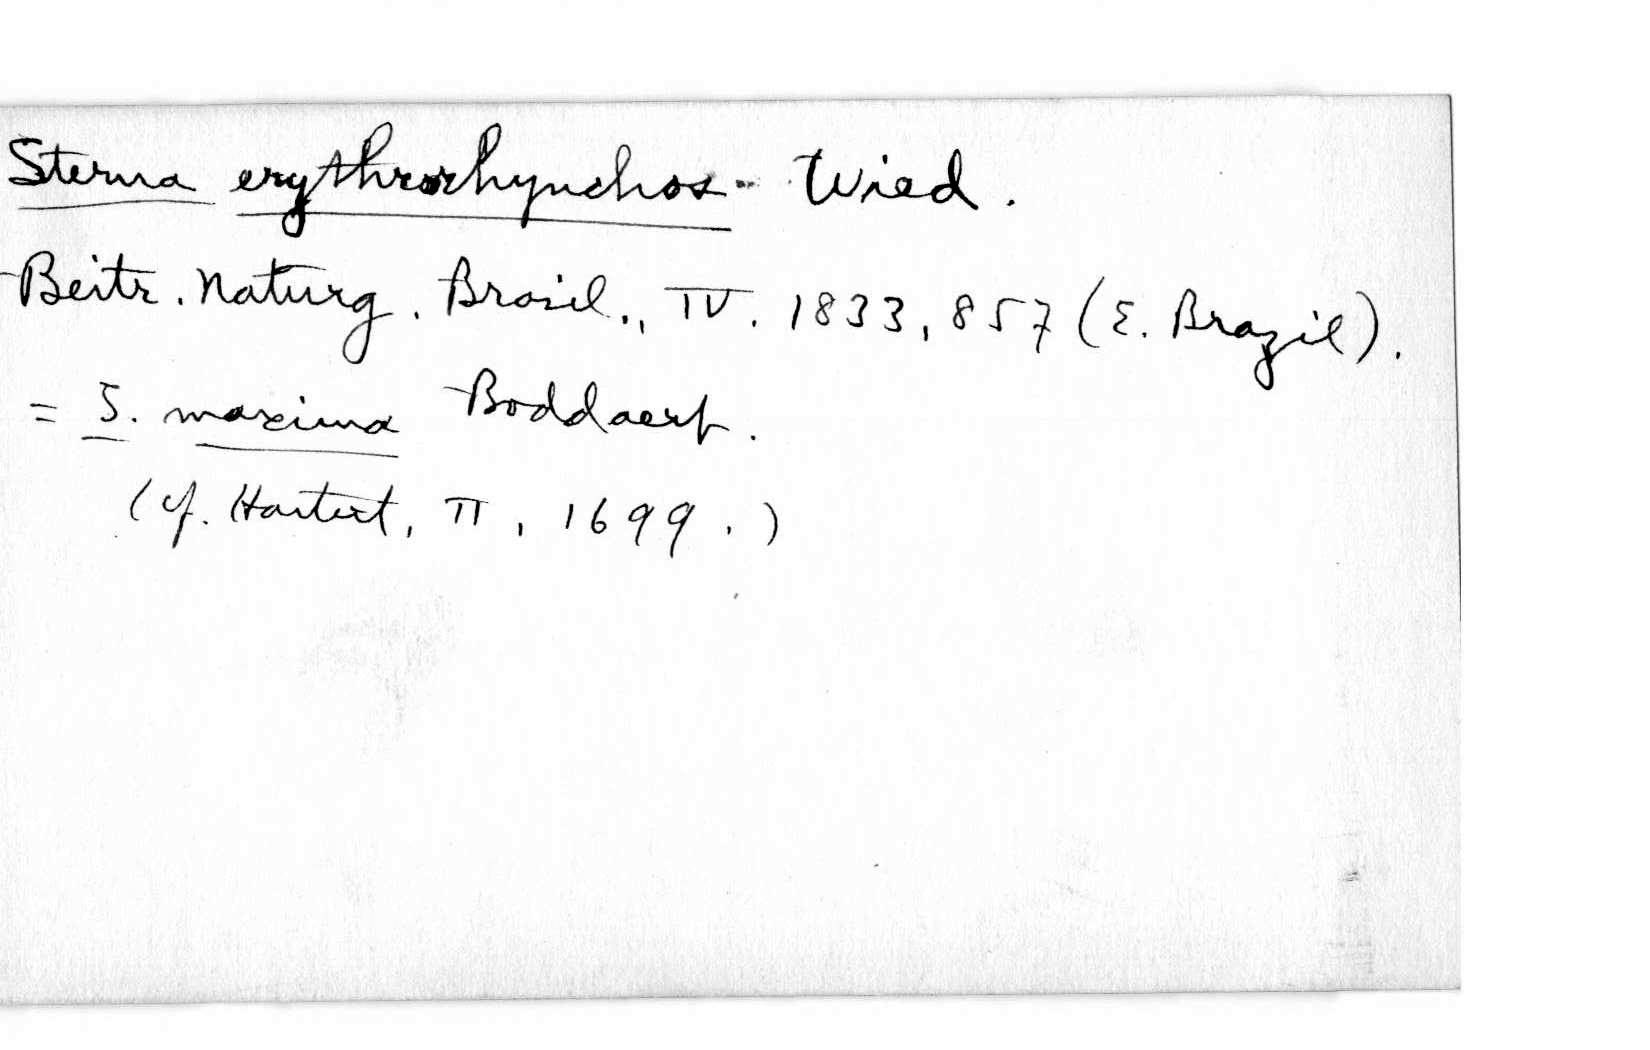 Sterna erythrorhynchos Wied.
Beitr. Naturg. Brasil., IV. 1833, 857 (E. Brazil).
= S. maxima Boddaert.
(cf. Hartert, II, 1699.)